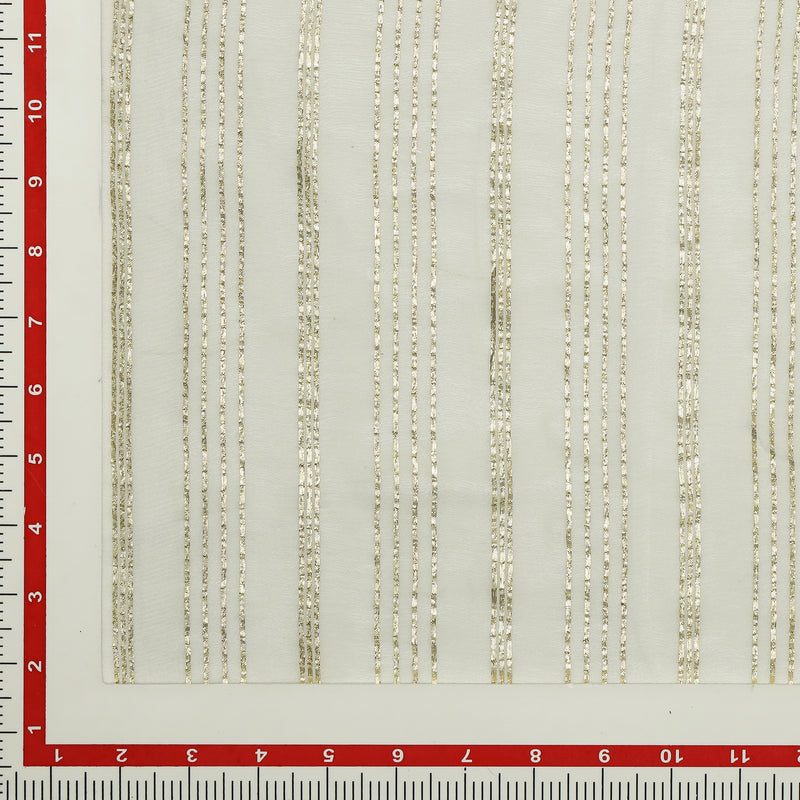 11
10
9
8
7
6
5
4
3
2
1
1 2 3 4 5 6 7 8 9 10 11